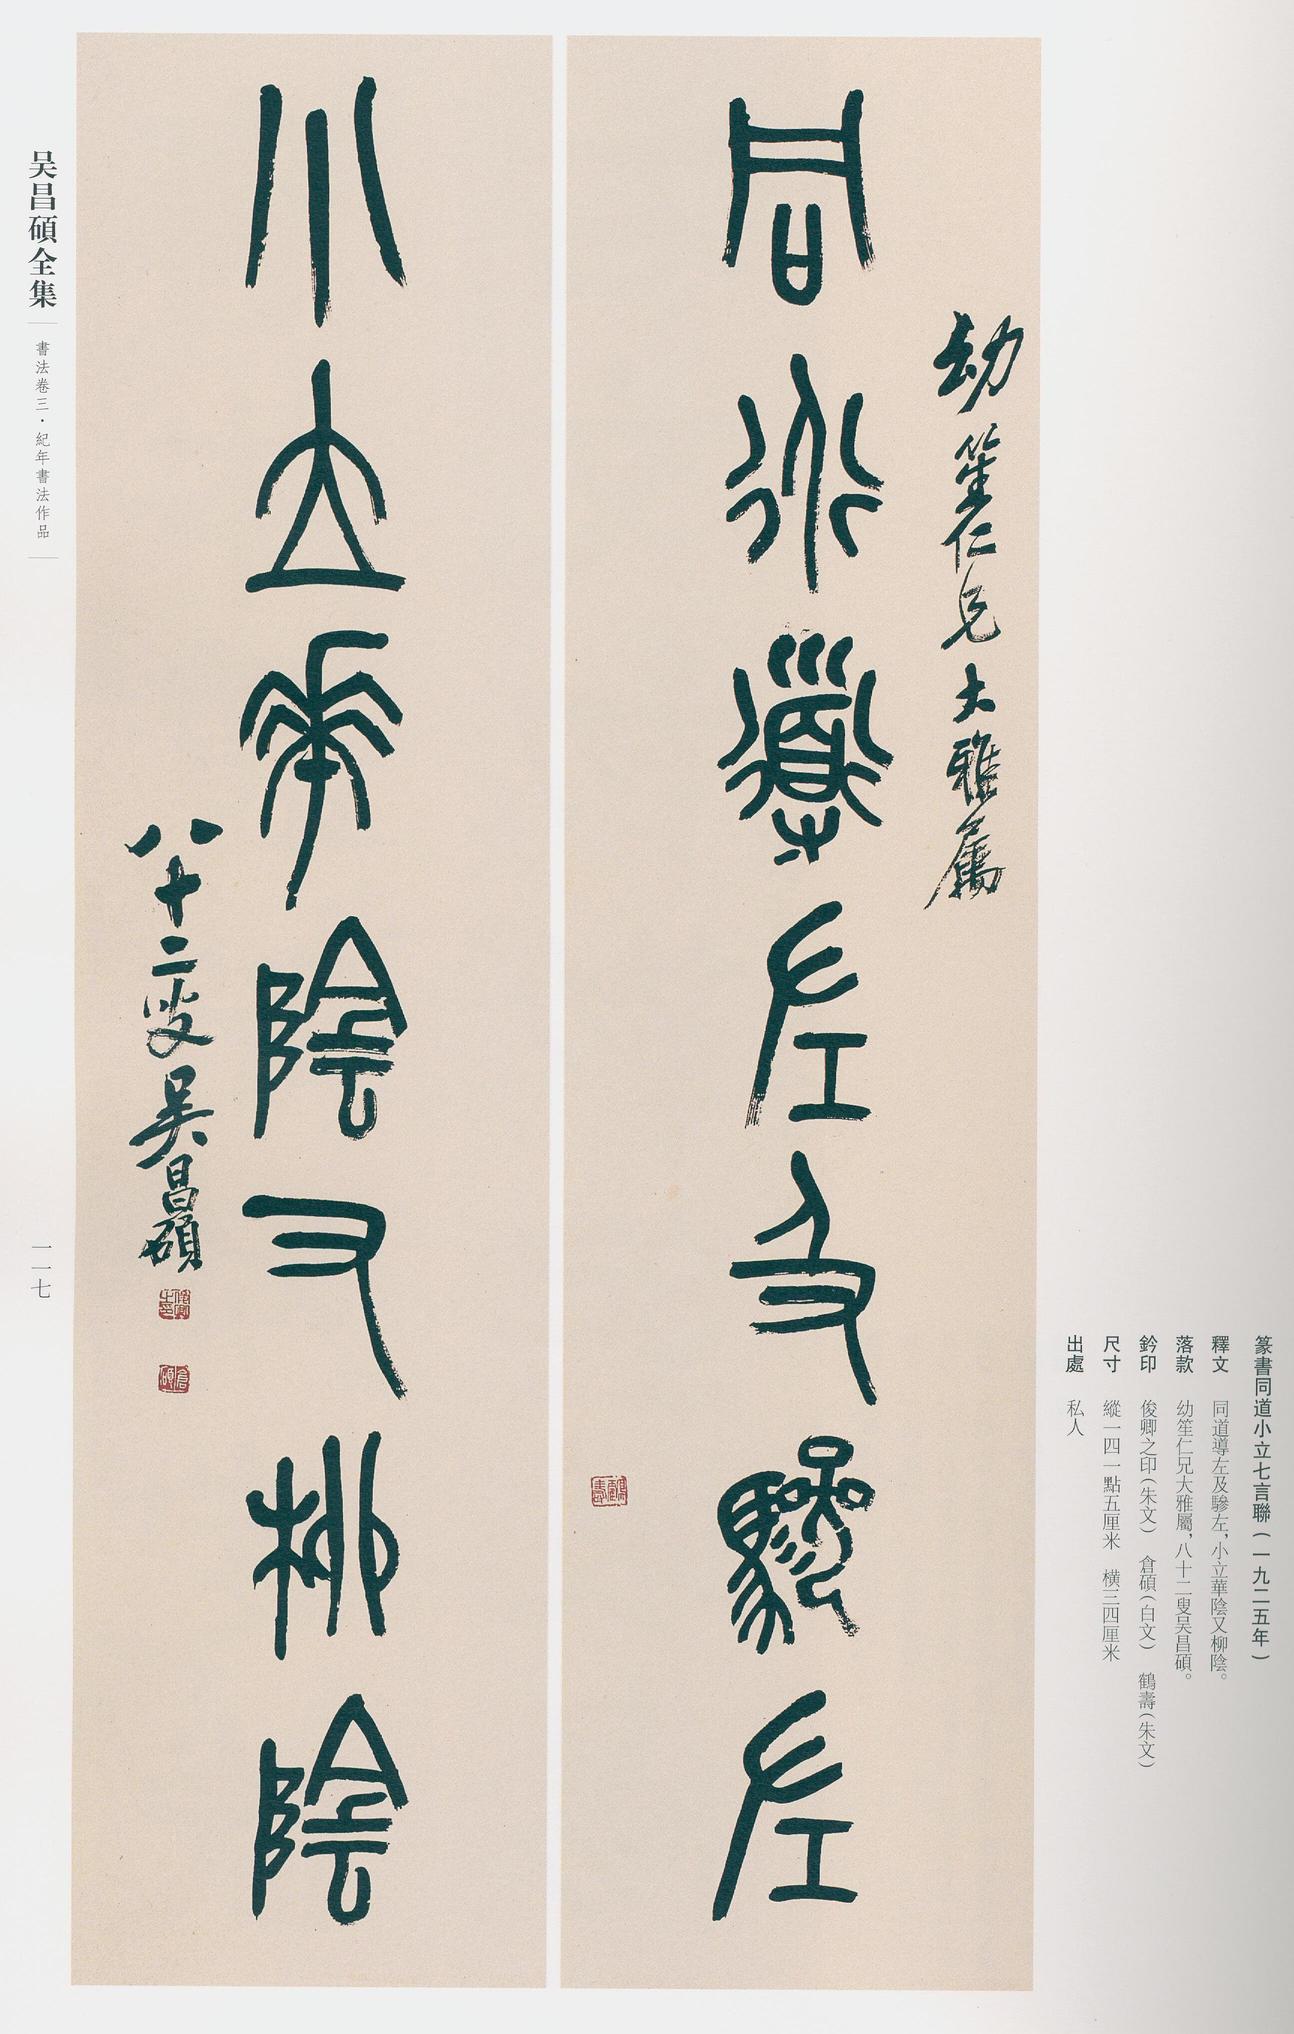 篆書同道小立七言聯(一九二五年)
釋文 同道導左及驂左,小立華陰又柳陰。
落款 幼笙仁兄大雅屬,八十二叟吴昌碩。
鈐印 俊卿之印(朱文) 倉碩(白文) 鶴壽(朱文)
尺寸 縱一四一點五厘米 横三四厘米
出處 私人
幼笙仁兄大雅屬
同道導左及驂左
鶴壽
小立華陰又柳陰
八十二叟吴昌碩
俊卿之印
倉碩
吴昌碩全集
書法卷三·紀年書法作品
一一七